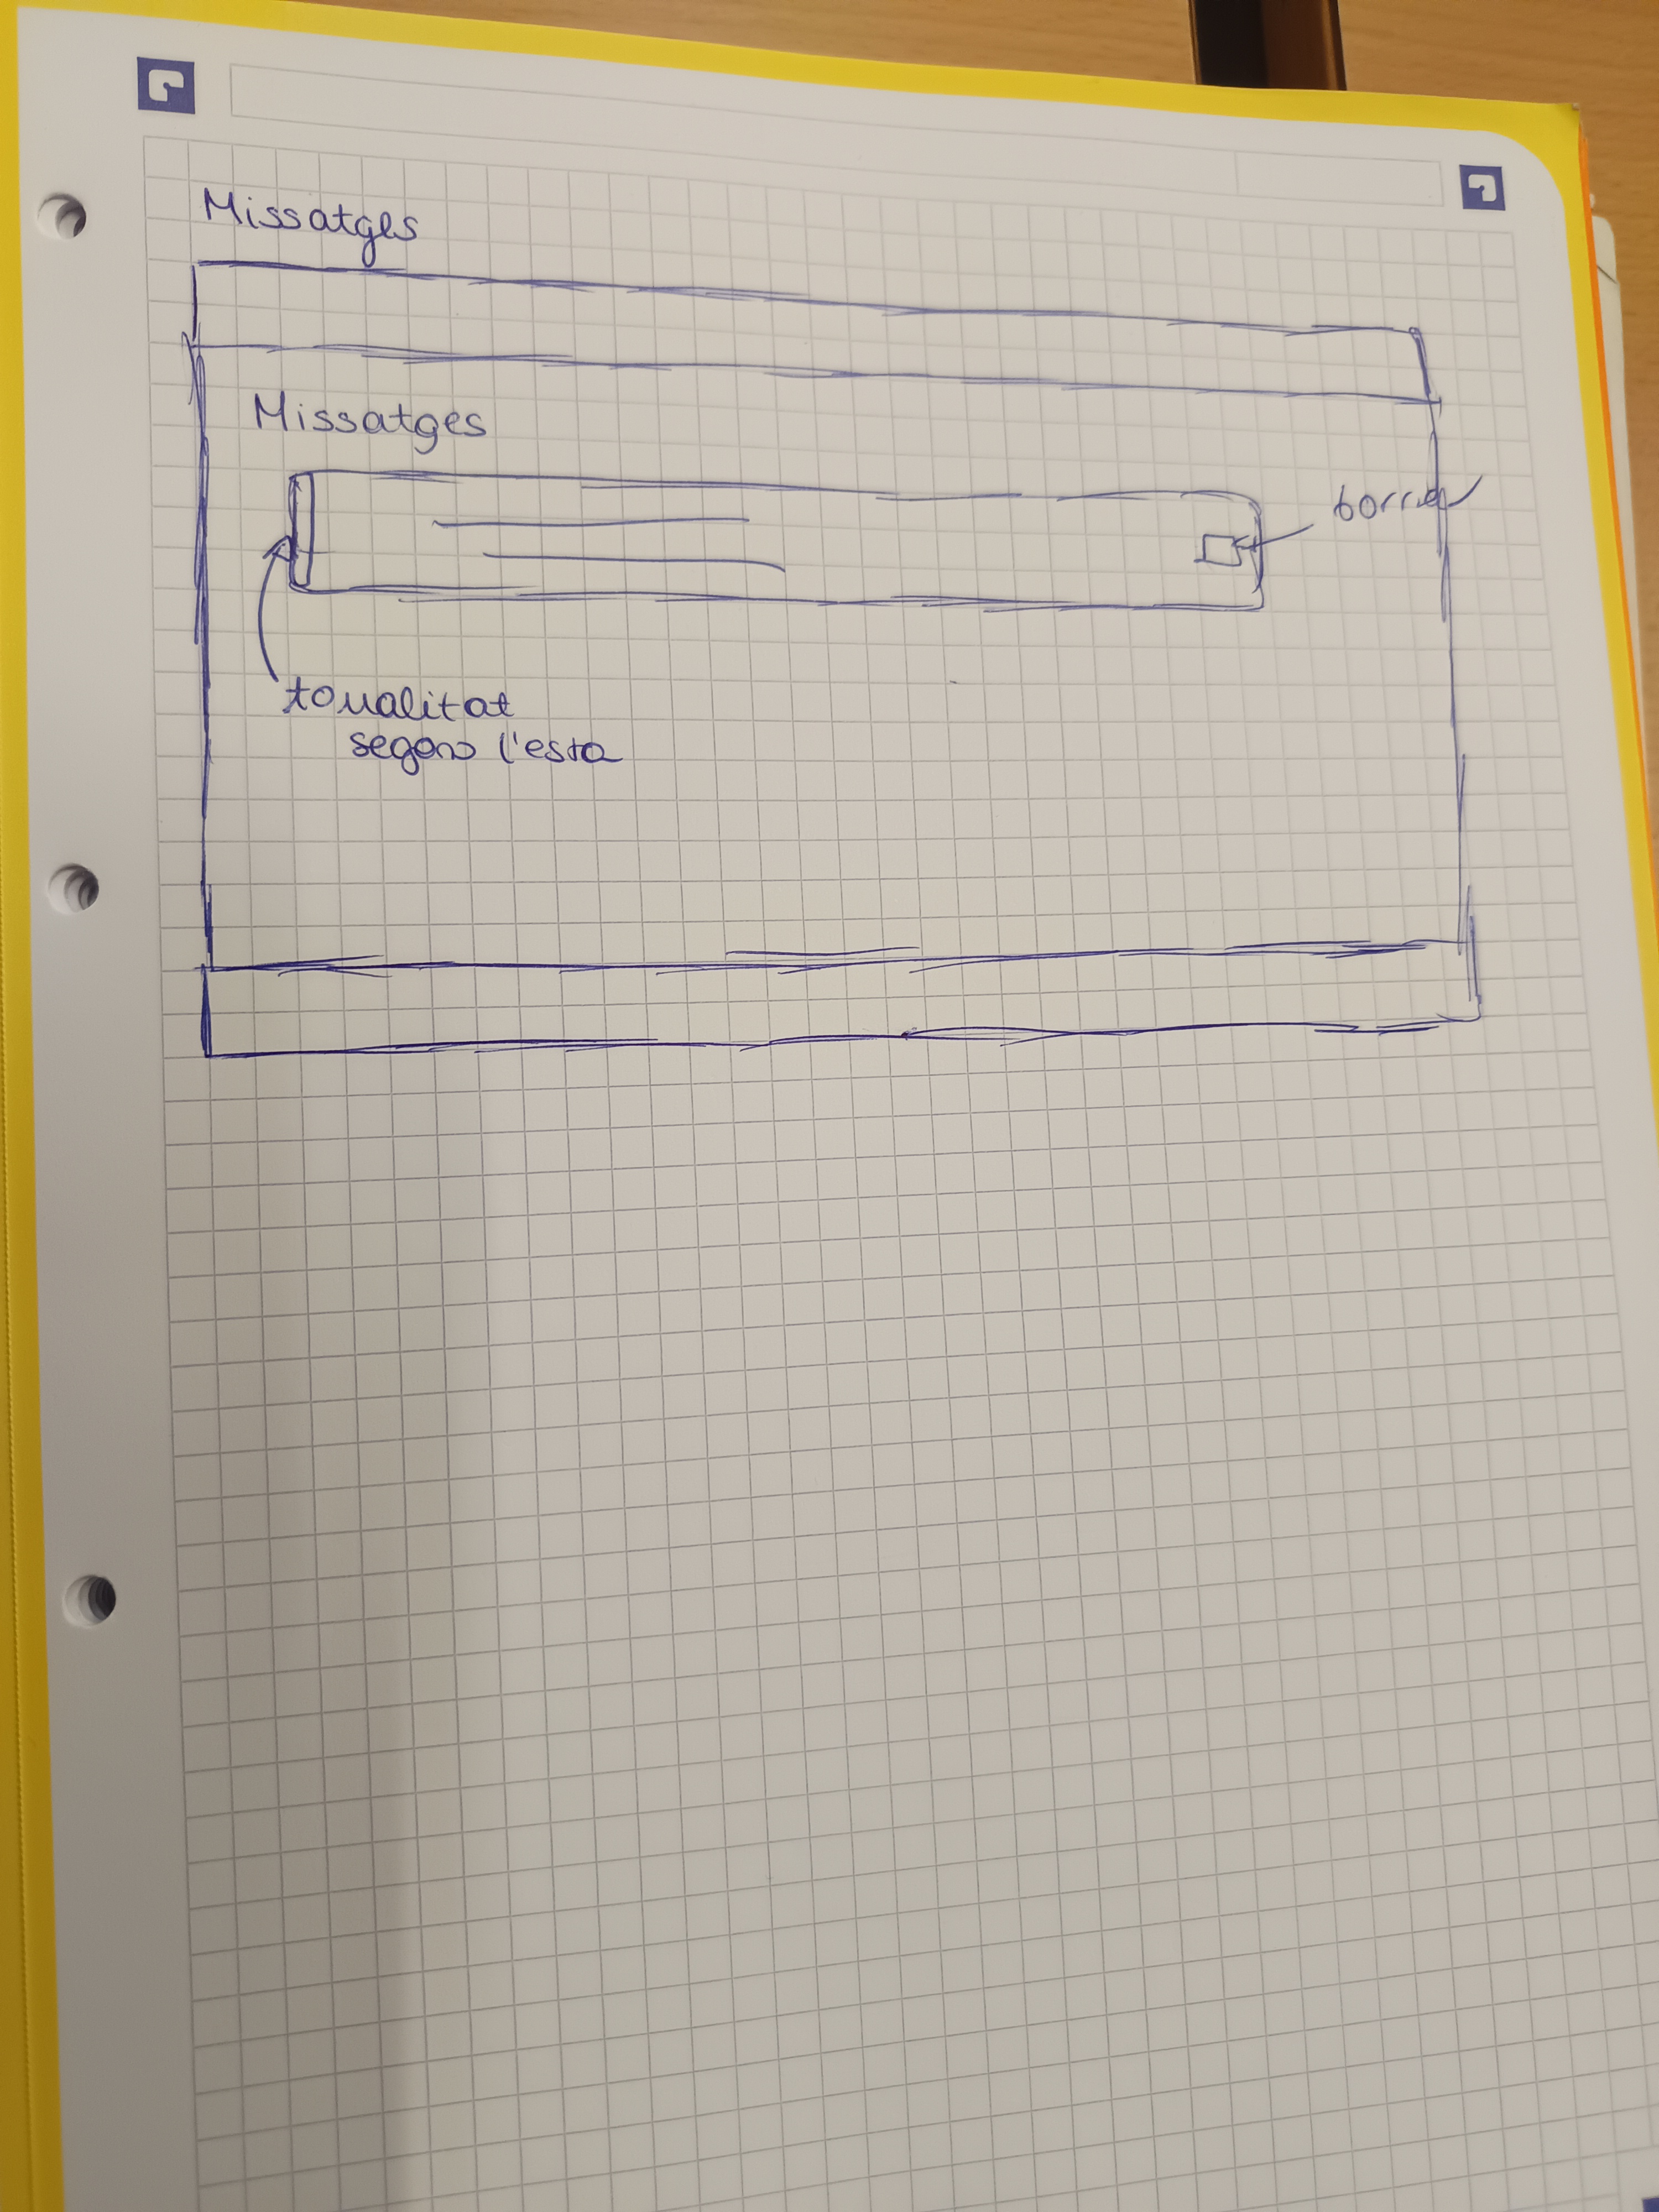 Missatges
Missatges
borrar
tonalitat
segons l'esta